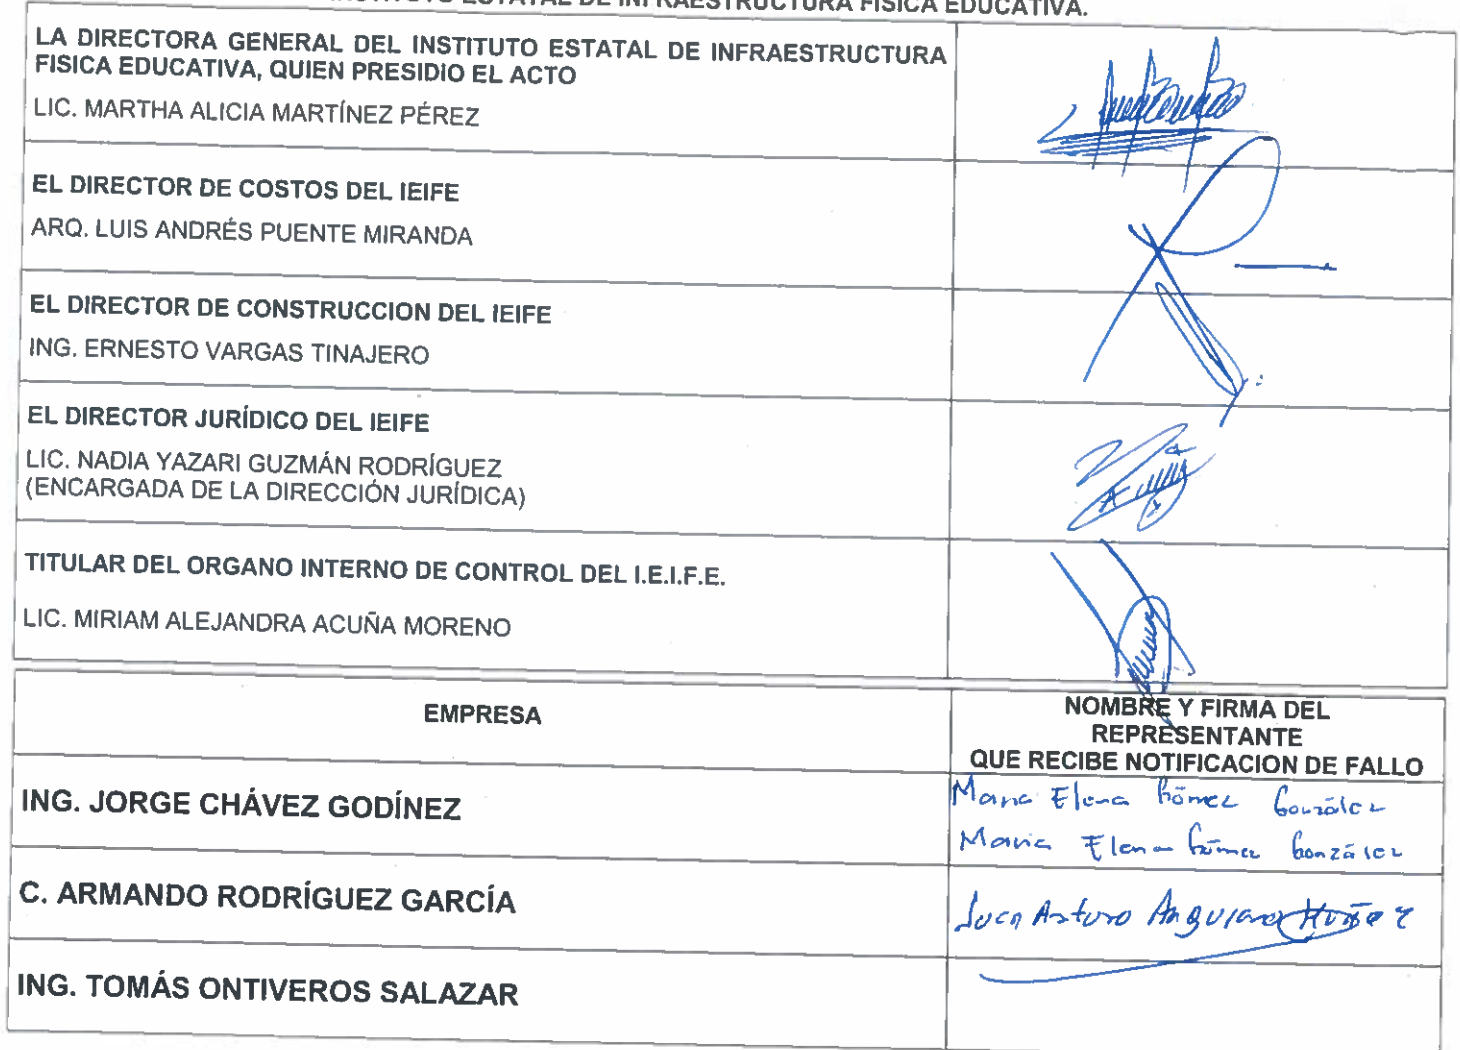 INSTITUTO ESTATAL DE INFRAESTRUCTURA FISICA EDUCATIVA.
LA DIRECTORA GENERAL DEL INSTITUTO ESTATAL DE INFRAESTRUCTURA
FISICA EDUCATIVA, QUIEN PRESIDIO EL ACTO
LIC. MARTHA ALICIA MARTÍNEZ PÉREZ
EL DIRECTOR DE COSTOS DEL IEIFE
ARQ. LUIS ANDRÉS PUENTE MIRANDA
EL DIRECTOR DE CONSTRUCCION DEL IEIFE
ING. ERNESTO VARGAS TINAJERO
EL DIRECTOR JURÍDICO DEL IEIFE
LIC. NADIA YAZARI GUZMÁN RODRÍGUEZ
(ENCARGADA DE LA DIRECCIÓN JURÍDICA)
TITULAR DEL ORGANO INTERNO DE CONTROL DEL I.E.I.F.E.
LIC. MIRIAM ALEJANDRA ACUÑA MORENO
EMPRESA
NOMBRE Y FIRMA DEL
REPRESENTANTE
QUE RECIBE NOTIFICACION DE FALLO
ING. JORGE CHÁVEZ GODÍNEZ
Maria Elena Gómez González
Maria Elena Gómez González
C. ARMANDO RODRÍGUEZ GARCÍA
Juan Arturo Anguiano
ING. TOMÁS ONTIVEROS SALAZAR